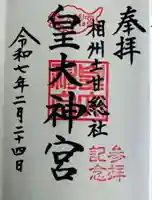 奉拝
相州土甘総社
皇大神宮
令和七年二月二十四日
参拝
記念